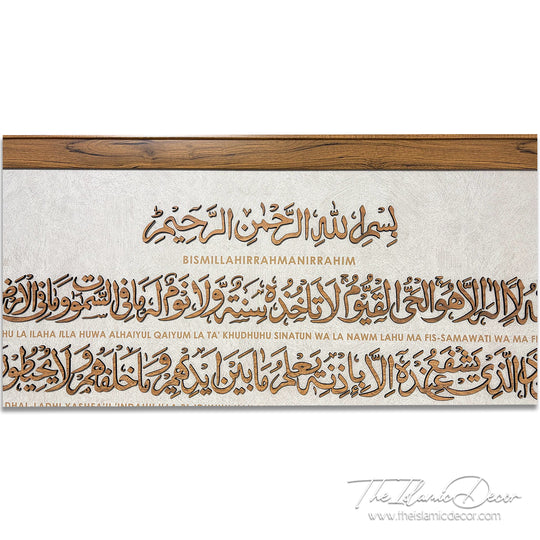 بِسْمِ اللهِ الرَّحْمٰنِ الرَّحِيْمِ
BISMILLAHIRRAHMANIRRAHIM
لَا إِلٰهَ إِلَّا هُوَ الْحَيُّ الْقَيُّوْمُ لَا تَأْخُذُهُ سِنَةٌ وَلَا نَوْمٌ لَهُ مَا فِي السَّمٰوٰتِ وَمَا فِي
HU LA ILAHA ILLA HUWA ALHAIYUL QAIYUM LA TA' KHUDHUHU SINATUN WA LA NAWM LAHU MA FIS-SAMAWATI WA MA FI
الَّذِيْ يَشْفَعُ عِنْدَهُ إِلَّا بِإِذْنِهِ يَعْلَمُ مَا بَيْنَ أَيْدِيْهِمْ وَمَا خَلْفَهُمْ وَلَا
The Islamic Decor
www.theislamicdecor.com